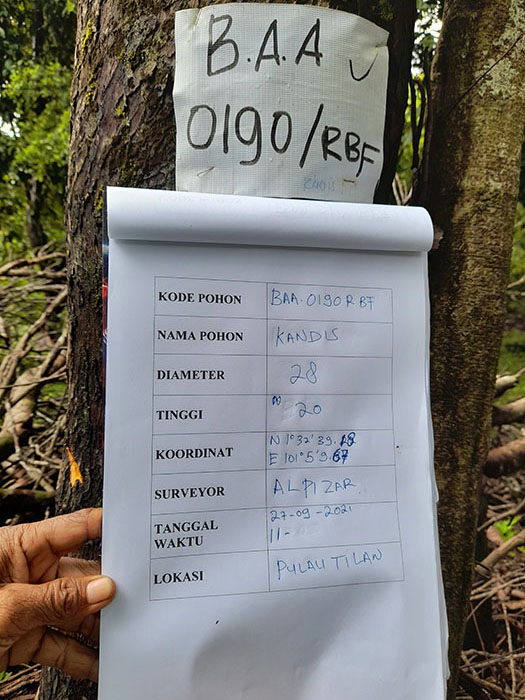 B.A.A
0190/RBF
KODE POHON BAA.0190 RBF
NAMA POHON KANDIS
DIAMETER 28
TINGGI 20
KOORDINAT N 1°32'39.18
E 101°5'9.67
SURVEYOR ALPIZAR
TANGGAL 27-09-2021
WAKTU 11-
LOKASI PULAU TILAN